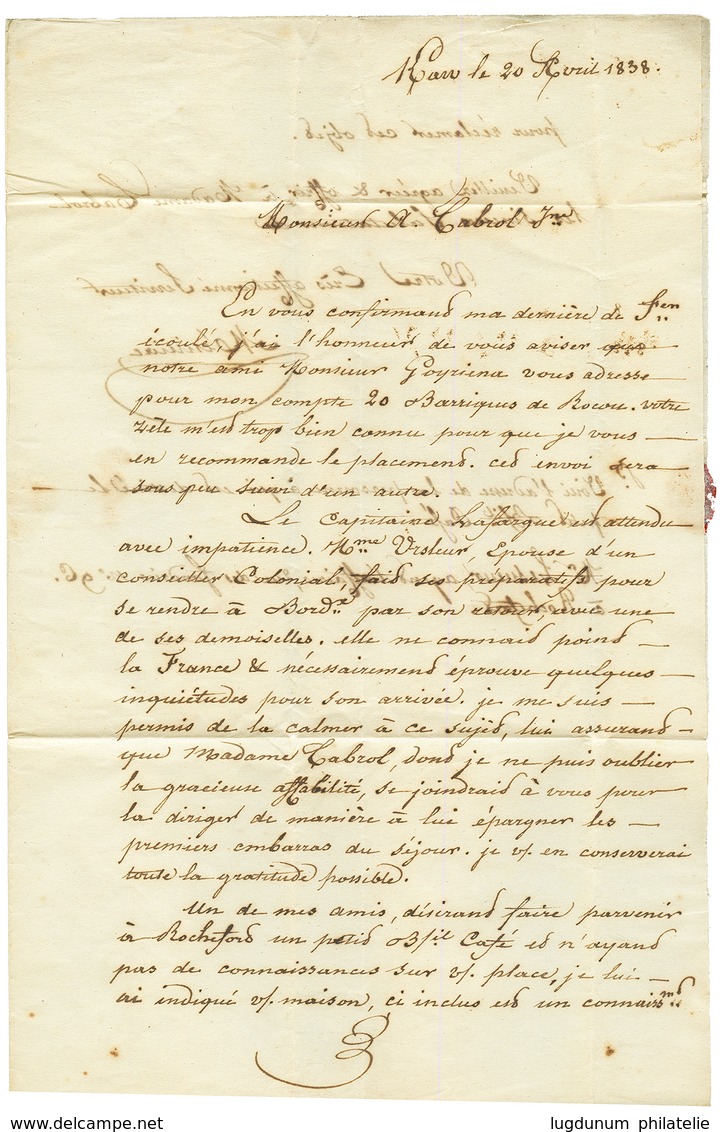 Kaw le 20 Avril 1838.
Monsieur A. Cabrol Jne
En vous confirmand ma dernière de
écoulé, j'ai l'honneur de vous aviser que
notre ami Monsieur Goyriena vous adresse
pour mon compte 20 Barriques de Rocou. votre
zèle m'est trop bien connu pour que je vous —
en recommande le placement. ced envoi sera
sous peu suivi d'un autre.
Le Capitaine Lafargue est attendu
avec impatience. Mme Ursleur Epouse d'un
conseiller Colonial, faid ses préparatifs pour
se rendre à Bordx par son retour, avec une
de ses demoiselles. elle ne connaid poind —
la France & nécessairemend éprouve quelques —
inquiétudes pour son arrivée. je me suis —
permis de la calmer à ce sujed, lui assurand —
que Madame Cabrol, dond je ne puis oublier
la gracieuse affabilité, se joindraid à vous pour
la diriger de manière à lui épargner les —
premiers embarras du séjour. je v/. en conserverai
toute la gratitude possible.
Un de mes amis, désirand faire parvenir
à Rocheford un petid B/il Café ed n'ayand
pas de connaissances sur v/. place, je lui —
ai indiqué v/. maison, ci inclus esd un connaissmd
lugdunum philatelie
www.delcampe.net